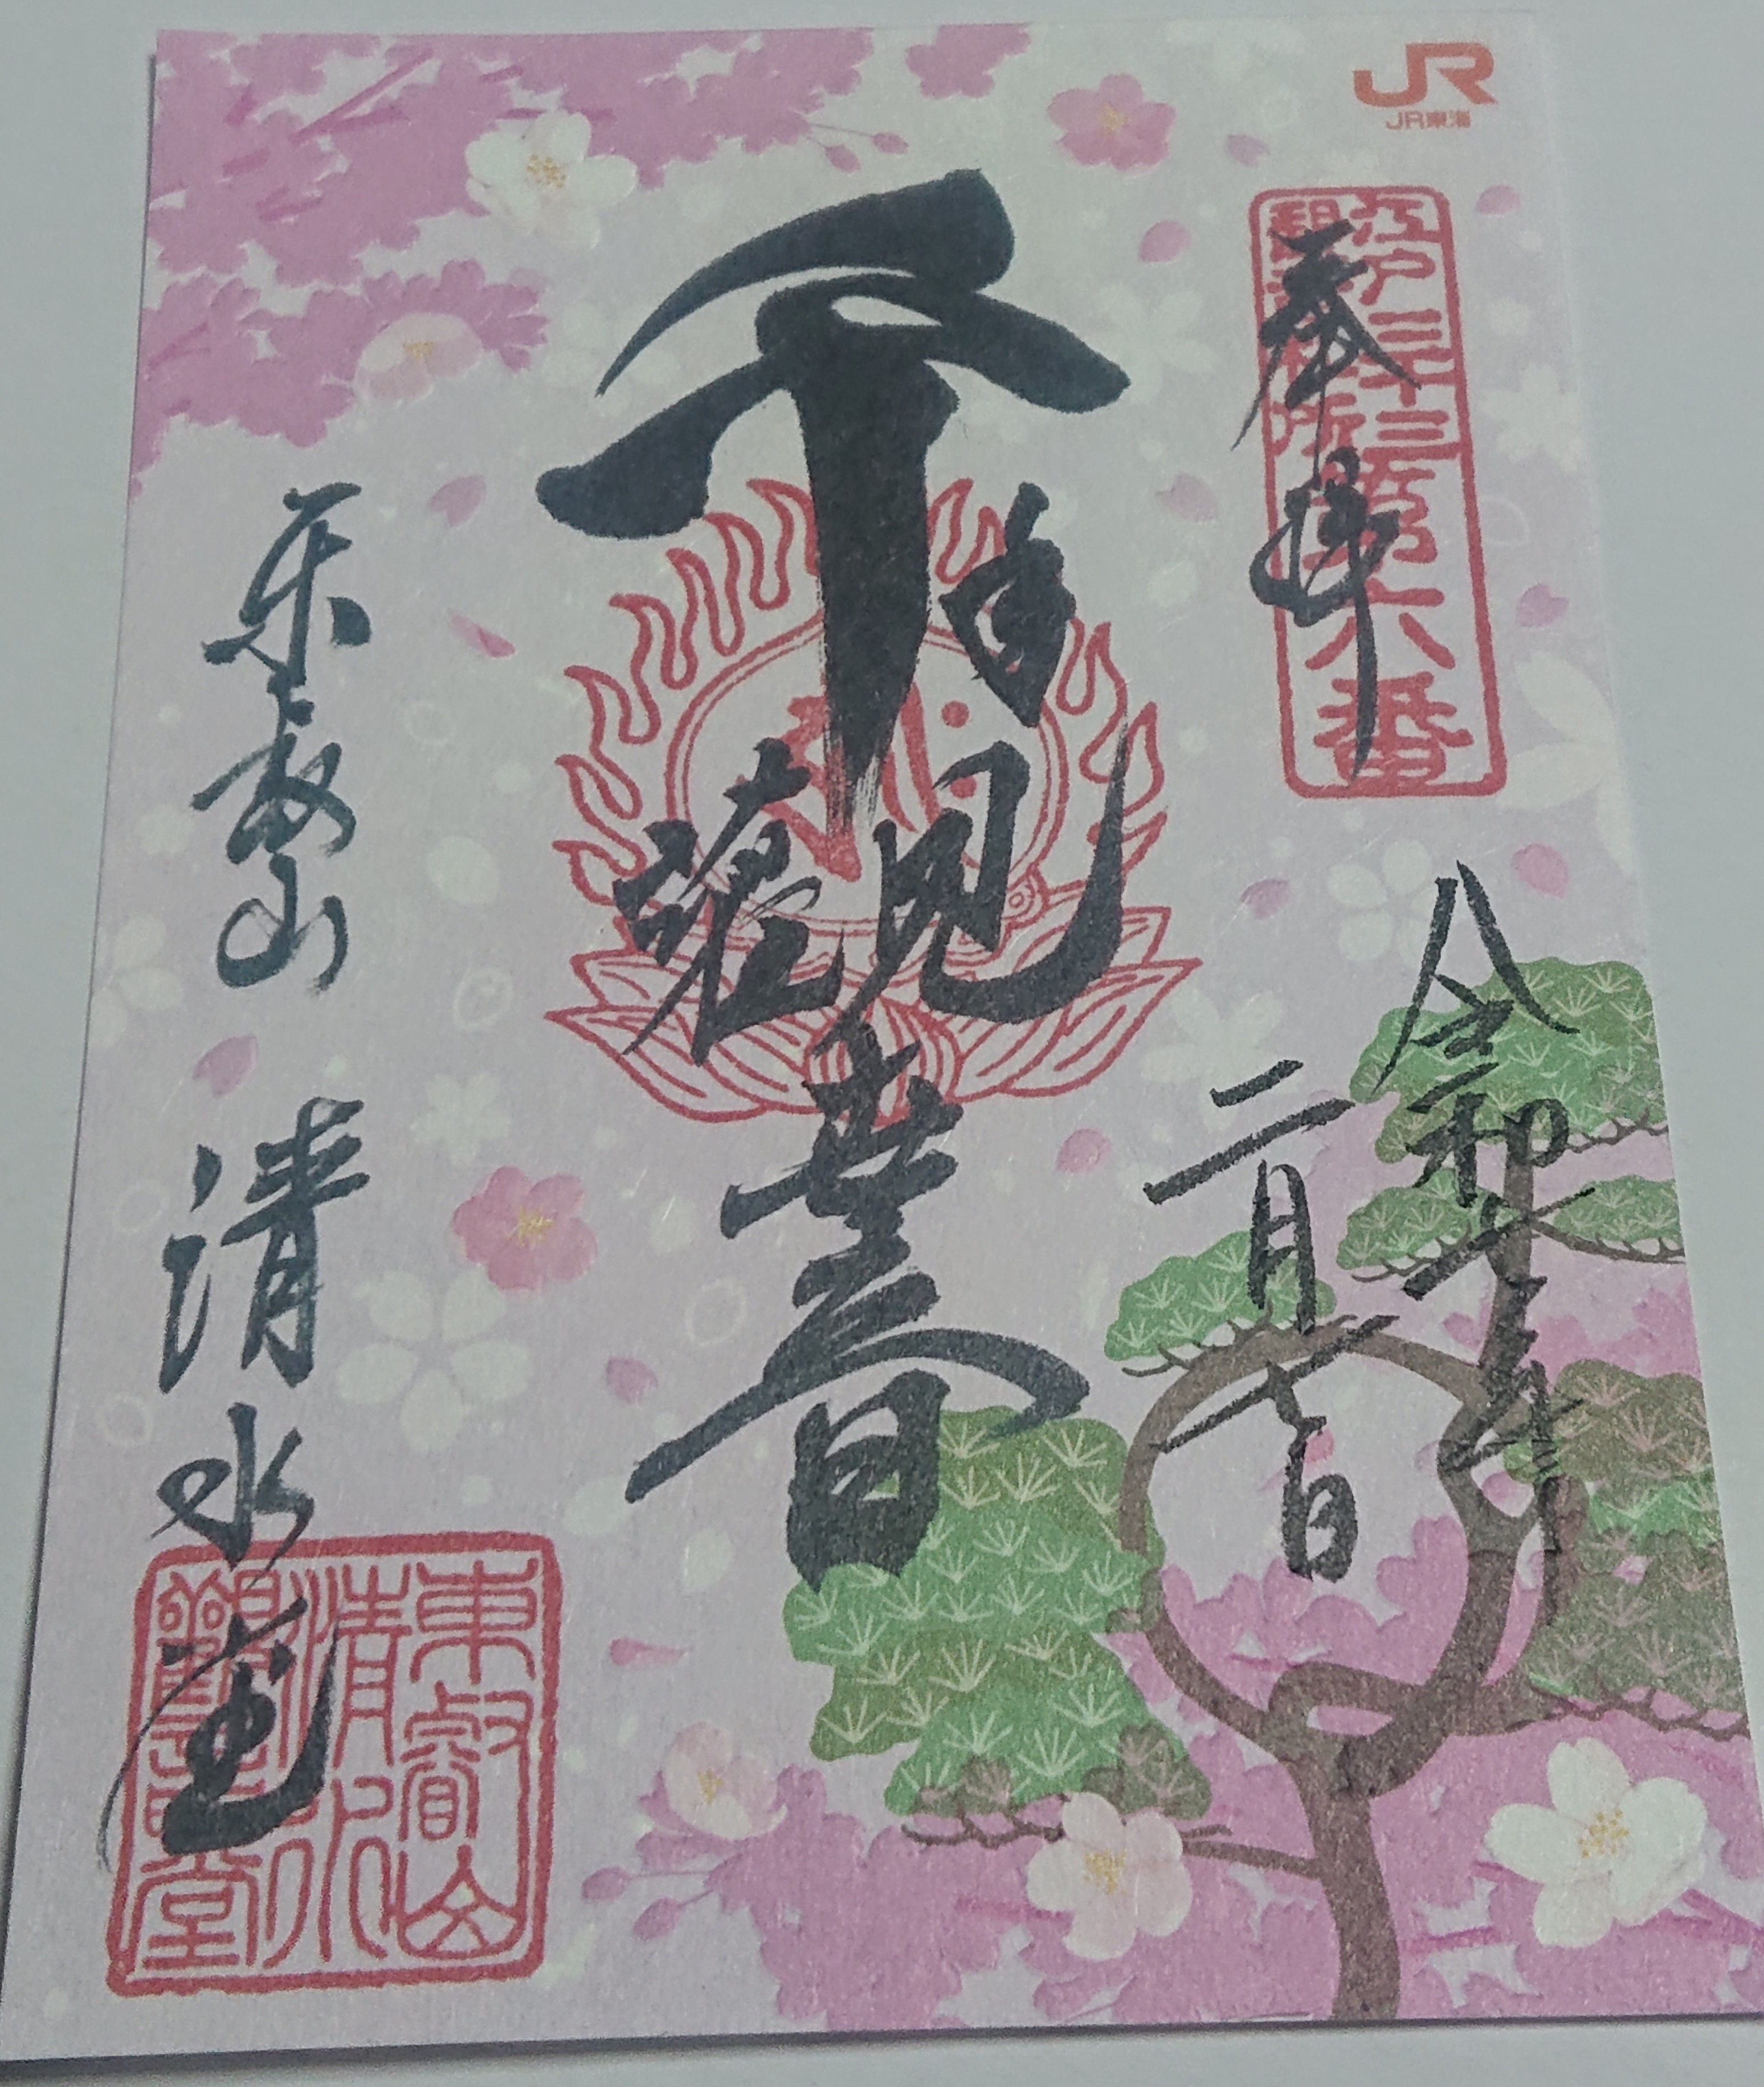 JR
JR東海
奉拝
江戸三十三
第六番
札所
令和七年
二月
日
千手観世音
東叡山 清水堂
東叡山
清水
観音堂